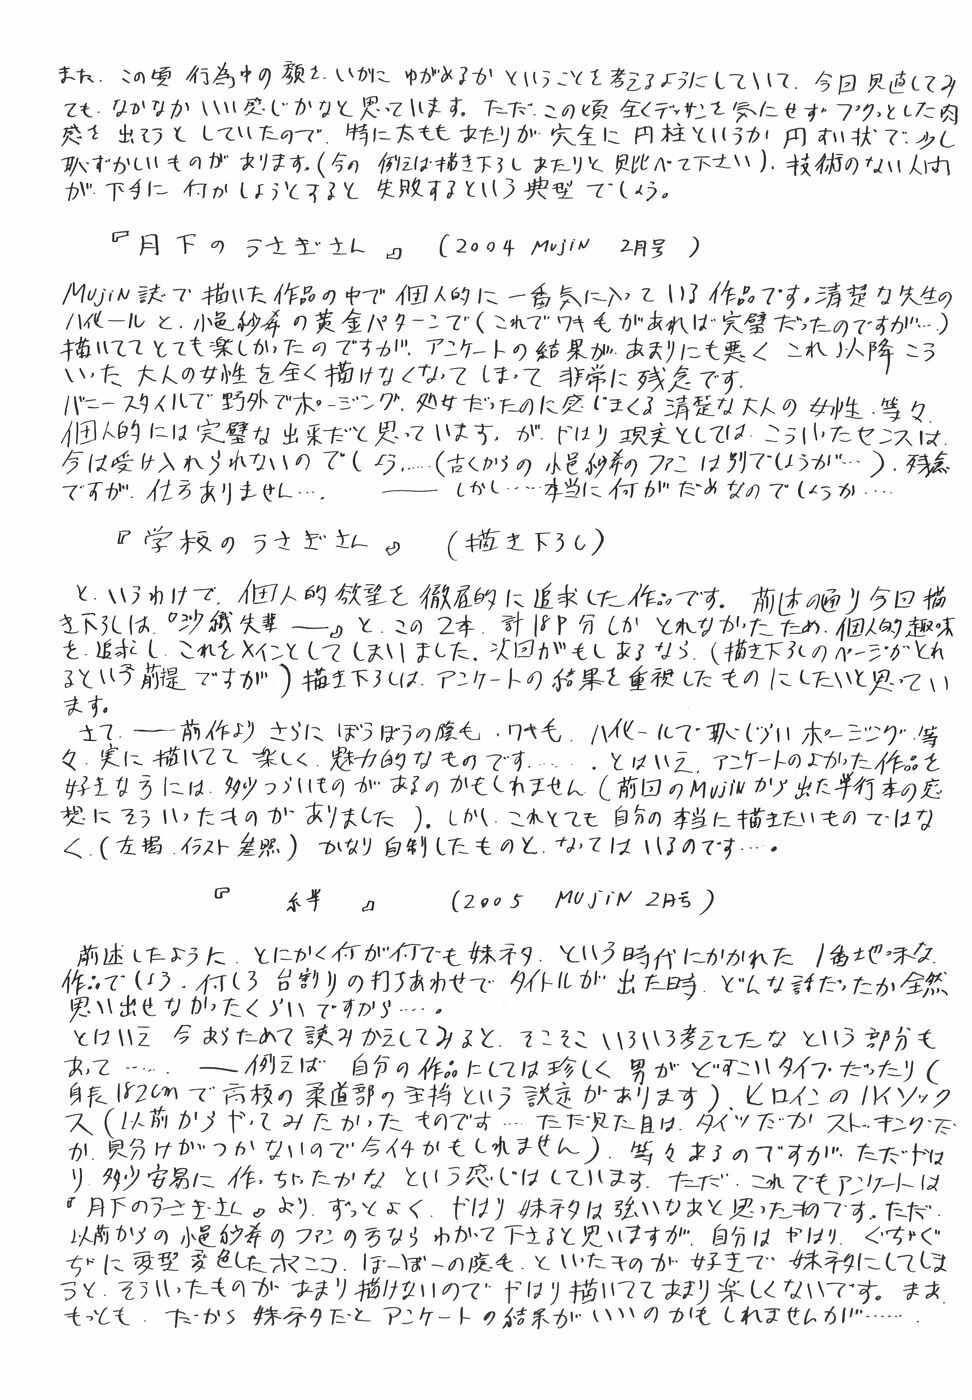 また、この頃 行為中の顔を、いかに ゆがめるか ということを考えるようにしていて、今回見直してみ
ても、なかなか いい感じかなと思っています。ただ、この頃 全くデッサンを気にせず プクッとした肉
感を 出そうと していたので、特に太もも あたりが 完全に 円柱というか 円すい状で、少し
恥ずかしいものがあります。(今の 例えば描き下ろし あたりと、見比べて下さい)、技術のない人間
が、下手に 何かしようとすると 失敗するという 典型 でしょう。
『月下のうさぎさん』 (2004 MUJIN 2月号)
MUJIN誌で描いた作品の中で個人的に一番気に入っている作品です。清楚な先生の
ハイヒールと、小邑紗希の黄金パターンで(これでワキ毛があれば完璧だったのですが…)
描いててとても楽しかったのですが、アンケートの結果が、あまりにも悪く、これ以降こう
いった大人の女性を全く描けなくなってしまって 非常に残念です。
バニースタイルで野外でポージング、処女だったのに感じまくる清楚な大人の女性、等々、
個人的には完璧な出来だと思っています。が、やはり現実としては、こういったセンスは、
今は受け入れられないのでしょう……(古くからの小邑紗希のファンは別でしょうが…)、残念
ですが、仕方ありません…。 ―― しかし……本当に何がだめなのでしょうか……
『学校のうさぎさん』 (描き下ろし)
と、いうわけで、個人的欲望を徹底的に追求した作品です。前述の通り今回描
き下ろしは、『沙織先輩――』と、この2本、計18P分しかとれなかったため、個人的趣味
を、追求し、これをメインとしてしまいました。次回がもしあるなら、(描き下ろしのページがとれ
るという前提ですが)描き下ろしは、アンケートの結果を重視したものにしたいと思ってい
ます。
さて、――前作より さらに ぼうぼうの陰毛、ワキ毛、ハイヒールで恥じらいポージング、等
々、実に描いてて楽しく、魅力的なものです……。とはいえ、アンケートのよかった作品を
好きな方には、多少つらいものがあるのかもしれません(前回のMUJINから出た単行本の感
想にそういったものがありました)。しかし、これとても自分の本当に描きたいものではな
く、(左掲、イラスト参照) かなり自制したものと、なってはいるのです…。
『 絆 』 (2005 MUJIN 2月号)
前述したように、とにかく何が何でも妹ネタ、という時代にかかれた1番地味な
作品でしょう。何しろ台割りの打ちあわせでタイトルが出た時、どんな話だったか全然
思い出せなかったくらいですから…。
とはいえ 今あらためて読みかえしてみると、そこそこいろいろ考えてたなという部分も
あって……、――例えば 自分の作品にしては珍しく男がどすこいタイプだったり(
身長182cmで高校の柔道部の主将という設定があります)、ヒロインのハイソック
ス(以前からやってみたかったものです…ただ見た目は、タイツだかストッキングだ
か、見分けがつかないので今イチかもしれません)、等々あるのですが、ただやは
り、多少安易に作っちゃったかなという感じはしています。ただ、これでもアンケートは
『月下のうさぎさん』より、ずっとよく、やはり妹ネタは強いなあと思ったものです。ただ、
以前からの小邑紗希のファンの方ならわかって下さると思いますが、自分はやはり、ぐちゃぐ
ちゃに変型変色した、ほーぼーの陰毛、といったものが好きで妹ネタにしてしま
うと、そういったものがあまり描けないのでやはり描いててあまり楽しくないです。まあ、
もっとも、だから妹ネタだとアンケートの結果がいいのかもしれませんが……。